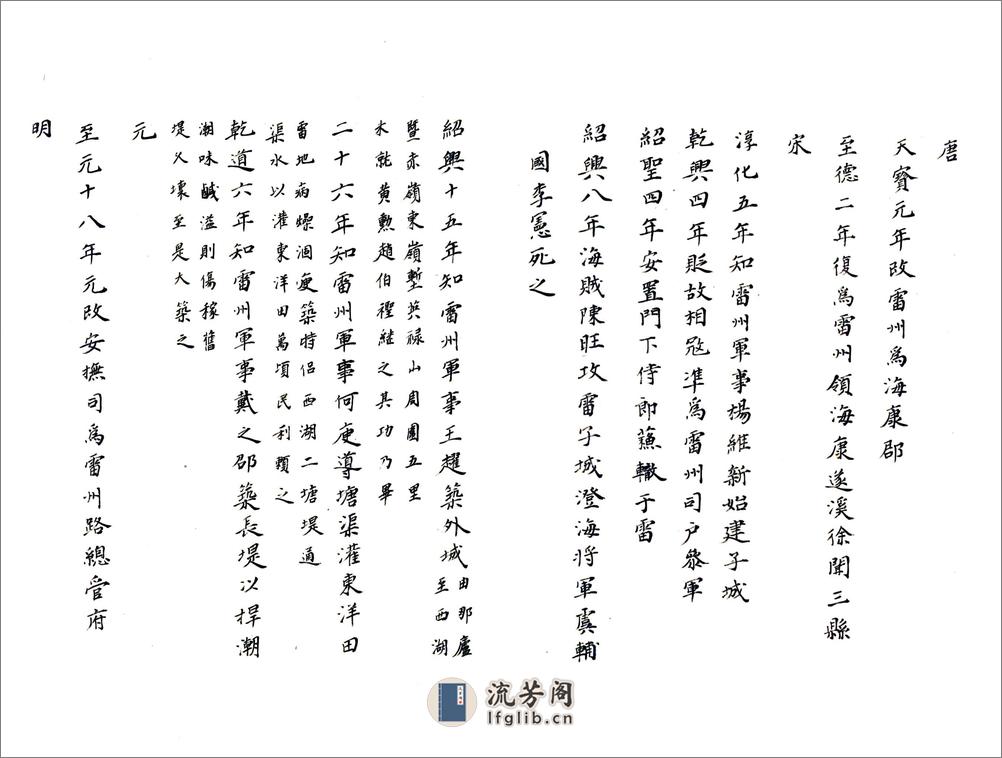 唐
天寳元年改雷州爲海康郡
至德二年復爲雷州領海康遂溪徐聞三縣
宋
淳化五年知雷州軍事楊維新始建子城
乾興四年貶故相冦準爲雷州司戶叅軍
紹聖四年安置門下侍郎蘓轍于雷
紹興八年海賊陳旺攻雷子城澄海將軍虞輔
國李憲死之
紹興十五年知雷州軍事王趯築外城由那廬
至西湖
暨亦嶺東嶺塹英禄山周圍五里
未就黃勲趙伯檉繼之其功乃畢
二十六年知雷州軍事何庾導塘渠灌東洋田
雷地病燥涸庾築特侣西湖二塘堤通
渠水以灌東洋田萬頃民利頼之
乾道六年知雷州軍事戴之邵築長堤以捍潮
潮味鹹溢則傷稼舊
堤乆壞至是大築之
元
至元十八年元改安撫司爲雷州路總管府
明
流芳阁
lfglib.cn